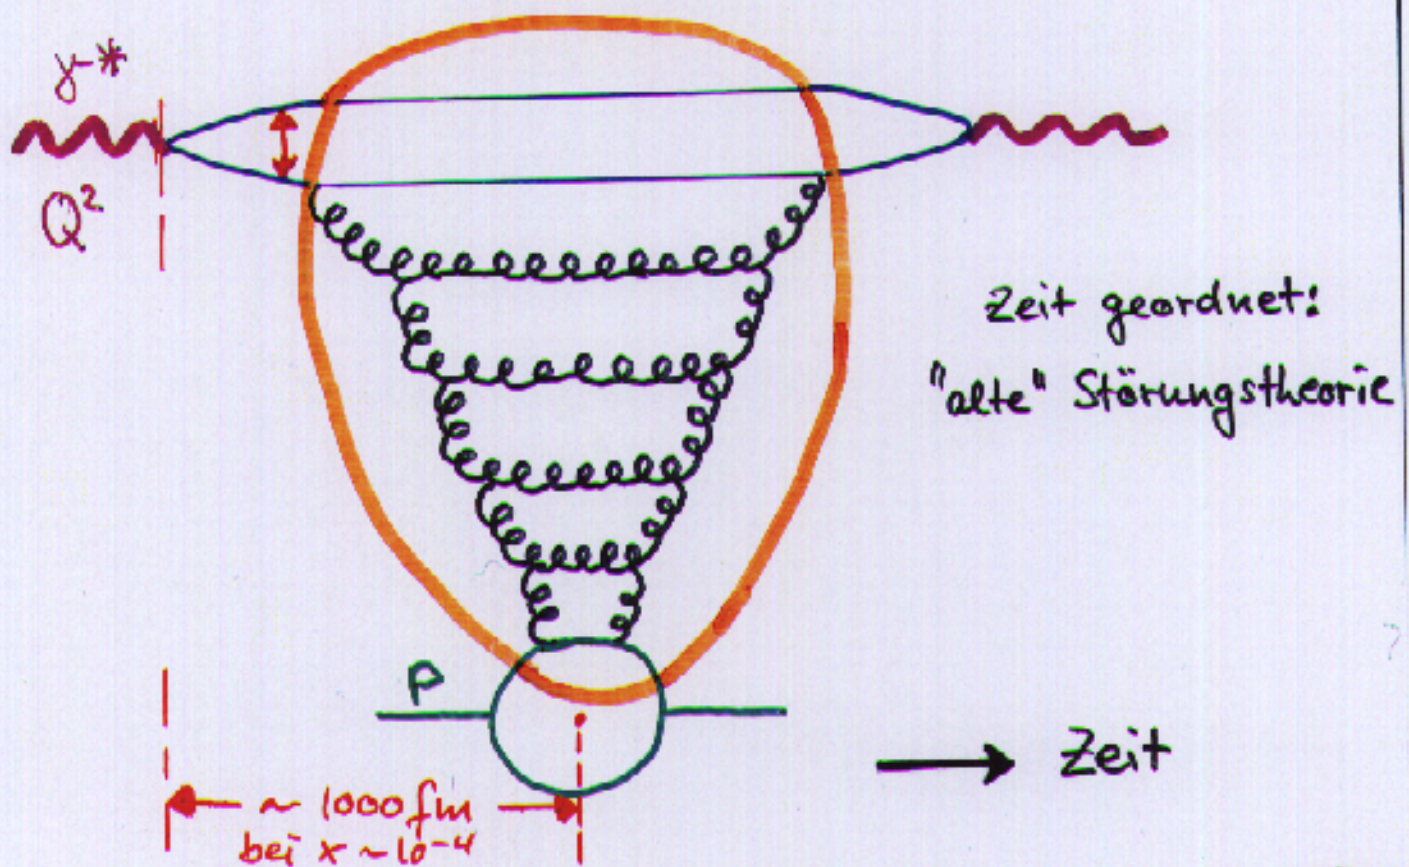 γ*
Q²
Zeit geordnet:
"alte" Störungstheorie
P
→ Zeit
~ 1000 fm
bei x ~ 10⁻⁴